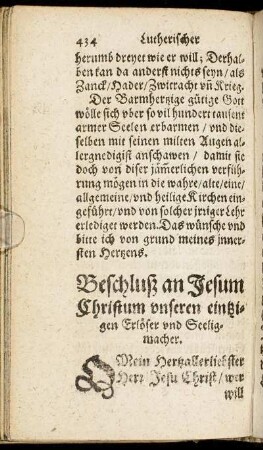 434 Lutherischer
herumb dreyet wie er will; Derhal-
ben kan da anderst nichts seyn/als
Zanck/Hader/Zwitracht vñ Krieg.
Der Barmhertzige gütige Gott
wölle sich vber so vil hundert tausent
armer Seelen erbarmen / vnd die-
selben mit seinen milten Augen al-
lergnedigist anschawen / damit sie
doch von diser jäm̃erlichen verfüh-
rung mögen in die wahre/alte/eine/
allgemeine/vnd heilige Kirchen ein-
geführe/vnd von solcher jrriger Lehr
erlediget werden. Das wünsche vnd
bitte ich von grund meines jnner-
sten Hertzens.
Beschluß an Jesum
Christum vnseren eintzi-
gen Erlöser vnd Seelig-
macher.
O Mein Hertzallerliebster
Herr Jesu Christ / wer
will